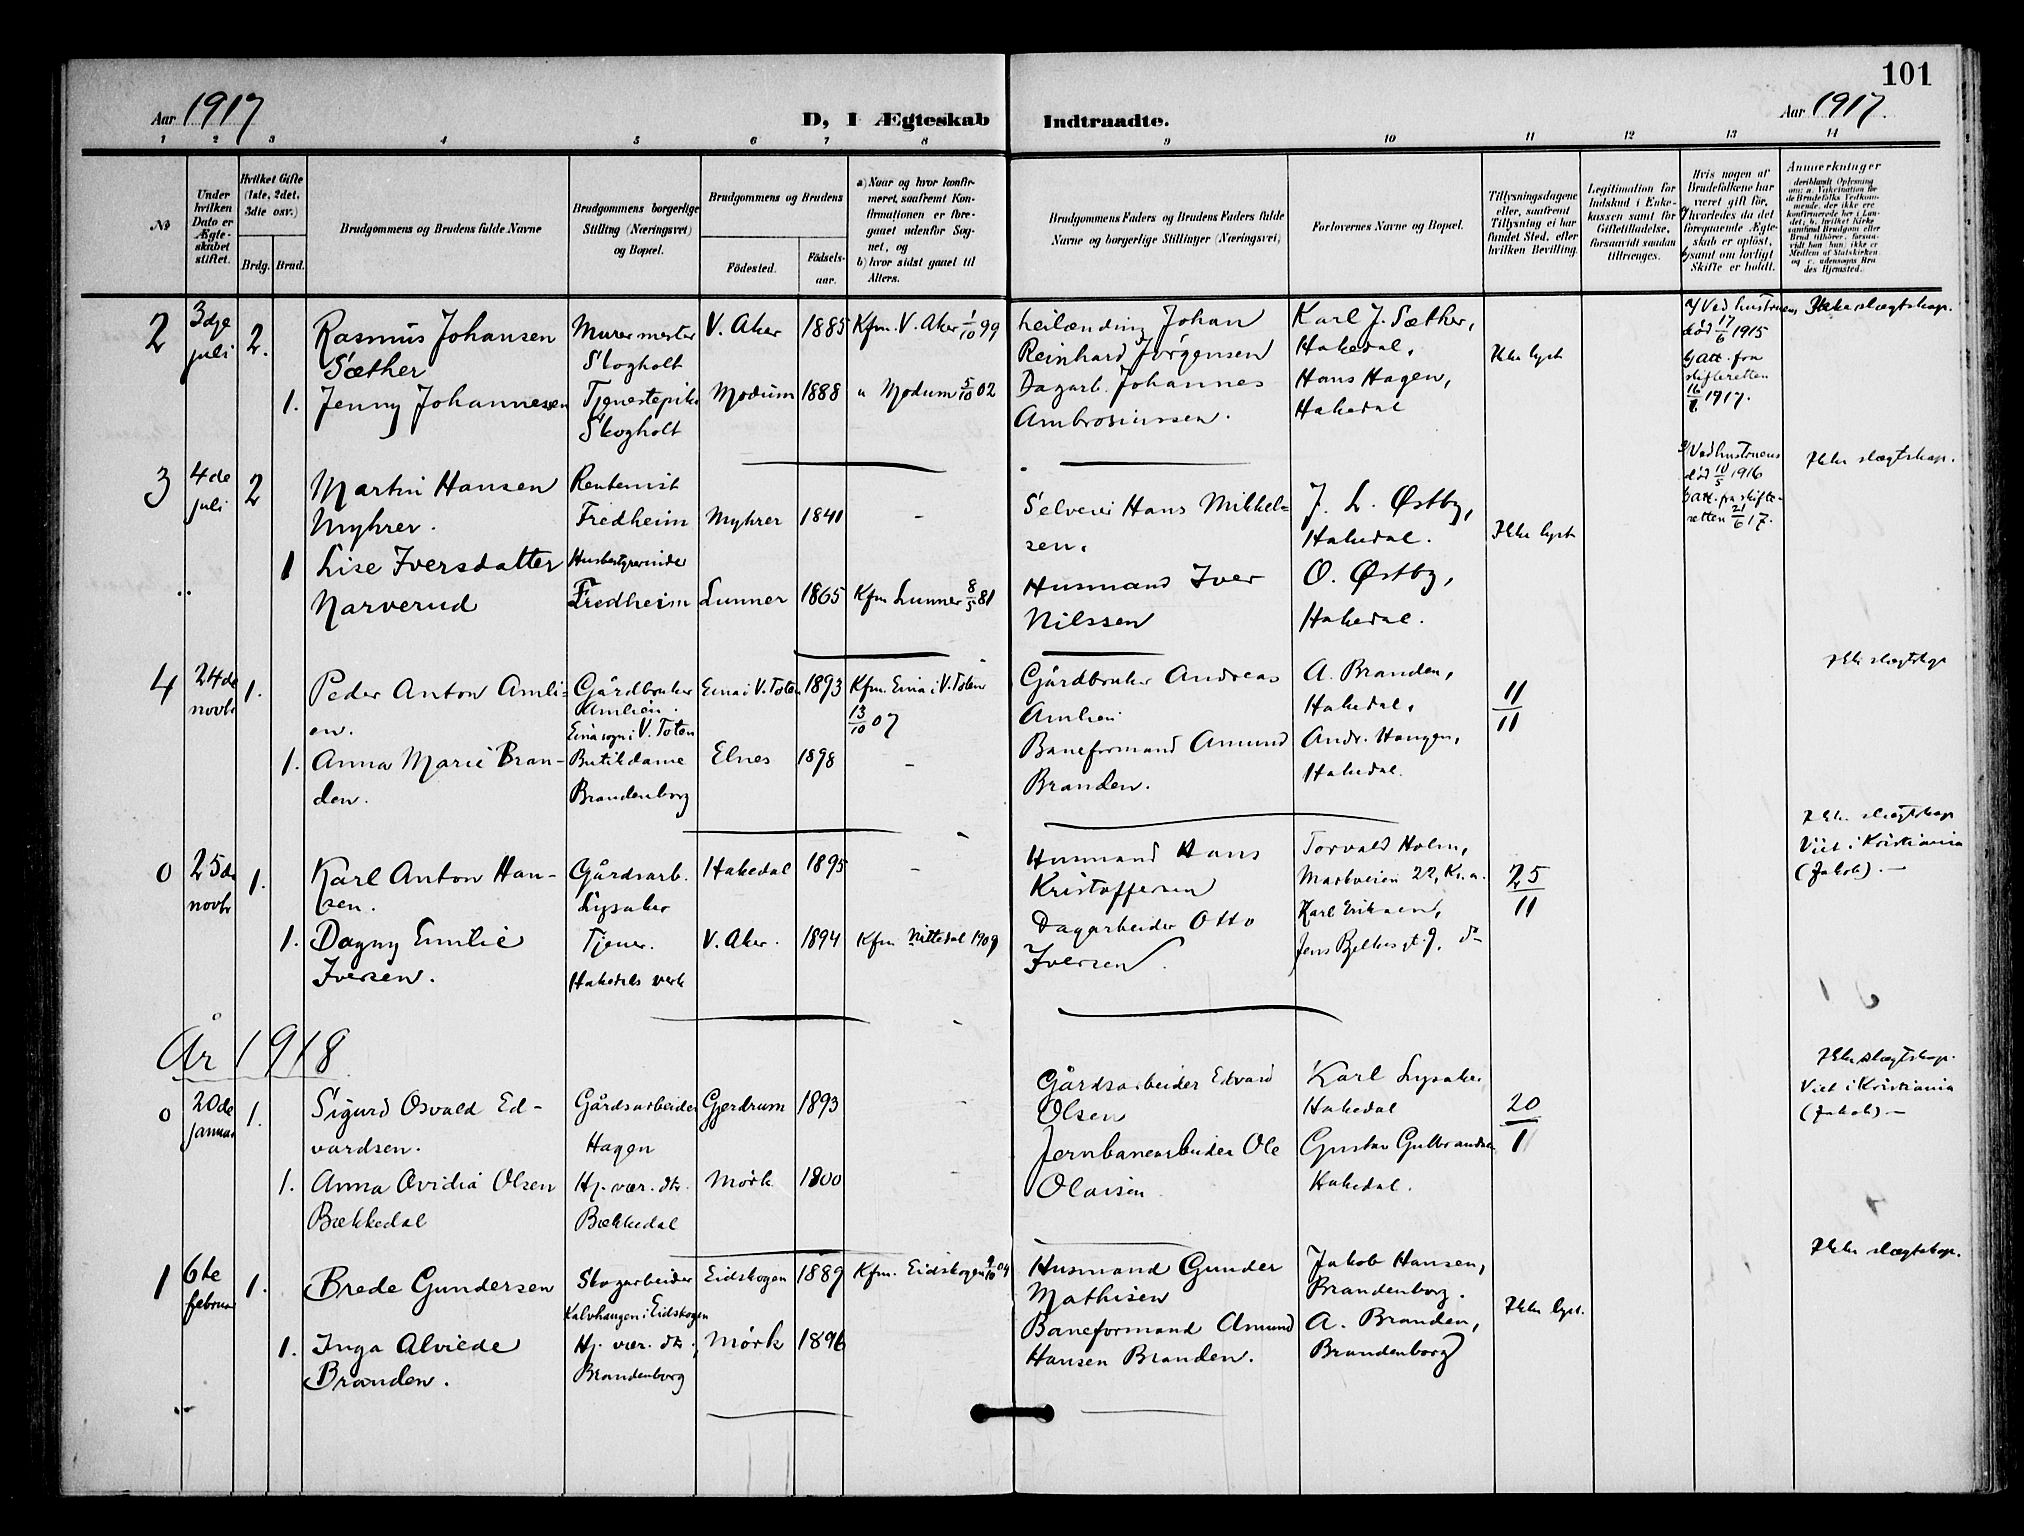 101
Aar 1917
D, I Ægteskab
Indtraadte.
Aar 1917.
1 2 3 4 5 6 7 8 9 10 11 12 13 14
№
Under hvilken Dato er Ægteskabet stiftet.
Hvilket Gifte (1ste, 2det, 3die osv.)
Brdg. Brud.
Brudgommens og Brudens fulde Navne
Brudgommens borgerlige Stilling (Næringsvei) og Bopæl.
Brudgommens og Brudens
Fødested.
Fødselsaar.
a) Naar og hvor konfirmeret, saafremt Konfirmationen er foregaaet udenfor Sognet, og
b) hvor sidst gaaet til Alters.
Brudgommens Faders og Brudens Faders fulde Navne og borgerlige Stillinger (Næringsvei)
Forlovernes Navne og Bopæl.
Tillysningsdagene eller, saafremt Tillysning ei har fundet Sted, efter hvilken Bevilling.
Legitimation for Indskud i Enkekassen samt for Giftetilladelse, forsaavidt saadan tiltrænges.
Hvis nogen af Brudefolkene har været gift før, hvorledes da det foregaaende Ægteskab er opløst, samt om lovligt Skifte er holdt.
Anmerkninger
2
3dje juli
2.
Rasmus Johansen Sæther
Murermester Skogholt
V. Aker
1885
Kfm. V. Aker 1/10 99
Leilænding Johan Reinhard Jørgensen
Karl J. Sæther, Hakedal.
Ikke lyst
a/ Ved hustruens død 17/6 1915
b/ att. fra skifteretten 16/1 1917.
Ikke slægtskap.
1.
Jenny Johannesen
Tjenestepike Skogholt
Modum
1888
" Modum 5/10 02
Dagarb. Johannes Ambrosiussen.
Hans Hagen, Hakedal
3
4de juli
2
Martin Hansen Myhrer.
Rentenist Fredheim
Myhrer
1841
-
Selveier Hans Mikkelsen.
J. L. Østby, Hakedal.
Ikke lyst
a/ Ved hustruens død 10/5 1916
b/ att. fra skifteretten 21/6 17.
Ikke slægtskap.
1
Lise Iversdatter Narverud
Husbestyrerinde Fredheim
Lunner
1865
Kfm Lunner 8/5 81
Husmand Iver Nilssen
O. Østby, Hakedal.
4
24de novbr
1.
Peder Anton Amlien.
Gårdbruker Amlien. Eina sogn i V. Toten
Eina i V. Toten
1893
Kfm. Eina i V. Toten 13/10 07
Gårdbruker Andreas Amlien
A. Branden, Hakedal.
11/11
Ikke slægtskap
1.
Anna Marie Branden.
Butikdame Brandenborg
Elnes
1898
-
Baneformand Amund Branden.
Andr. Haugen, Hakedal.
0
25de novbr
1.
Karl Anton Hansen.
Gårdsarb. Lysaker
Hakedal
1895
-
Husmand Hans Kristoffersen
Torvald Holm, Markveien 22, Kr.a.
25/11
Ikke slægtskap
Viet i Kristiania (Jakob). -
1.
Dagny Emilie Iversen.
Tjener. Hakedals verk
V. Aker.
1894
Kfm Nittedal 1909
Dagarbeider Otto Iversen.
Karl Eriksen, Jens Bjelkes gt. 9. do
År 1918
0
20de januar
1.
Sigurd Osvald Edvardsen.
Gårdsarbeider Hagen
Gjerdrum
1893
Gårdsarbeider Edvard Olsen
Karl Lysaker Hakedal
20/1
Ikke slægtskap.
Viet i Kristiania (Jakob) -
1.
Anna Ovidia Olsen Bækkedal
Hj. vær. dtr. Bækkedal
Mørk
1800
Jernbanearbeider Ole Olaisen
Gustav Gulbrandsen Hakedal.
1
6te februar
1.
Brede Gundersen
Skogarbeider Kalvhaugen i Eidskogen
Eidskogen
1889
Kfm. Eidskogen 9/10 04
Husmand Gunder Mathisen
Jakob Hansen, Brandenborg.
Ikke lyst.
Ikke slægtskap.
1.
Inga Alvilde Branden.
Hj. vær. dtr. Brandenborg
Mørk
1896
Baneformand Amund Hansen Branden.
A. Branden, Brandenborg